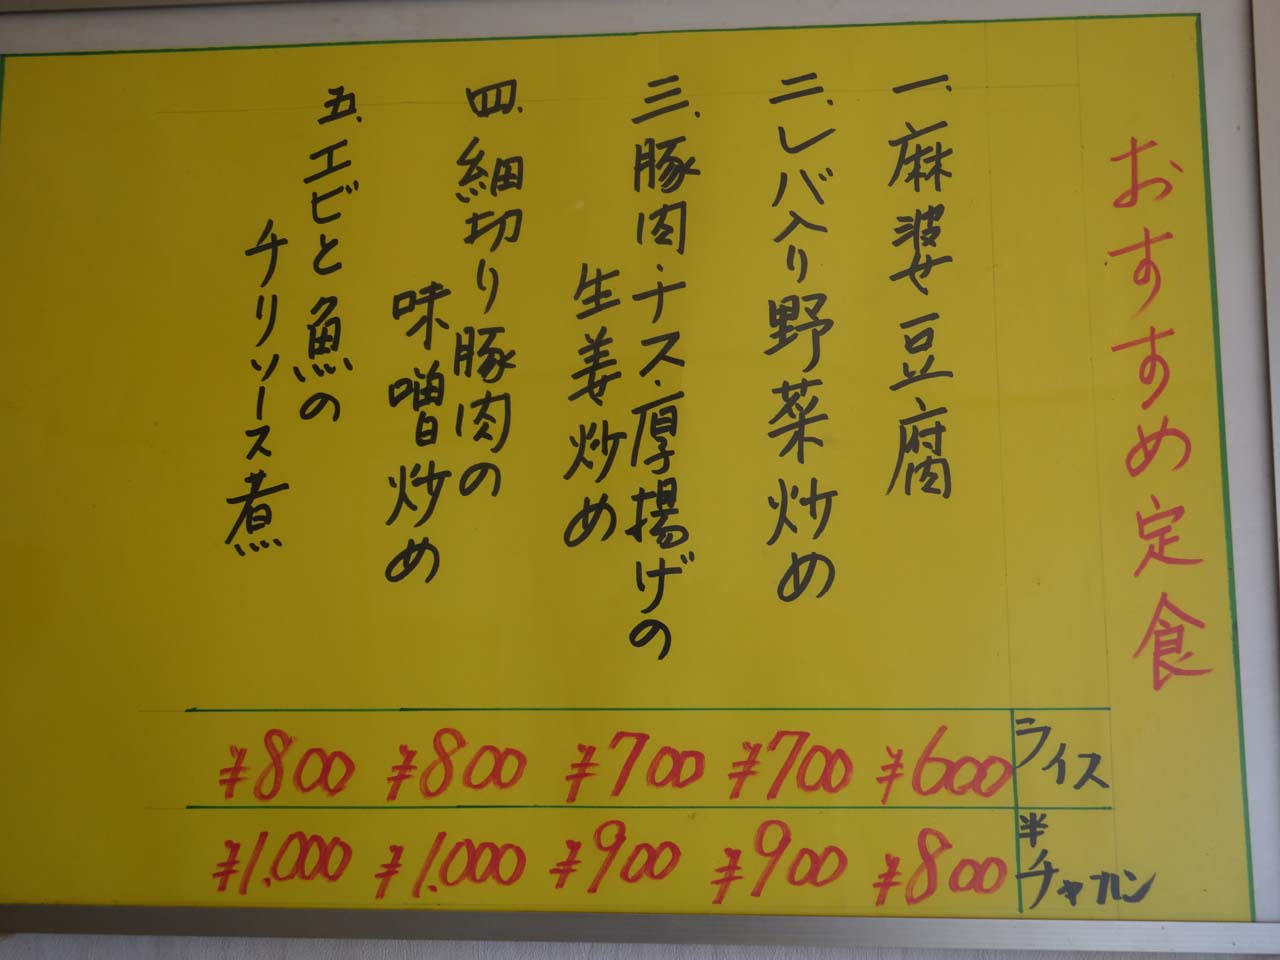 おすすめ定食
一.麻婆豆腐
二.レバ入り野菜炒め
三.豚肉・ナス・厚揚げの
生姜炒め
四.細切り豚肉の
味噌炒め
五.エビと魚の
チリソース煮
ライス
¥600
¥700
¥700
¥800
¥800
半チャハン
¥800
¥900
¥900
¥1.000
¥1.000